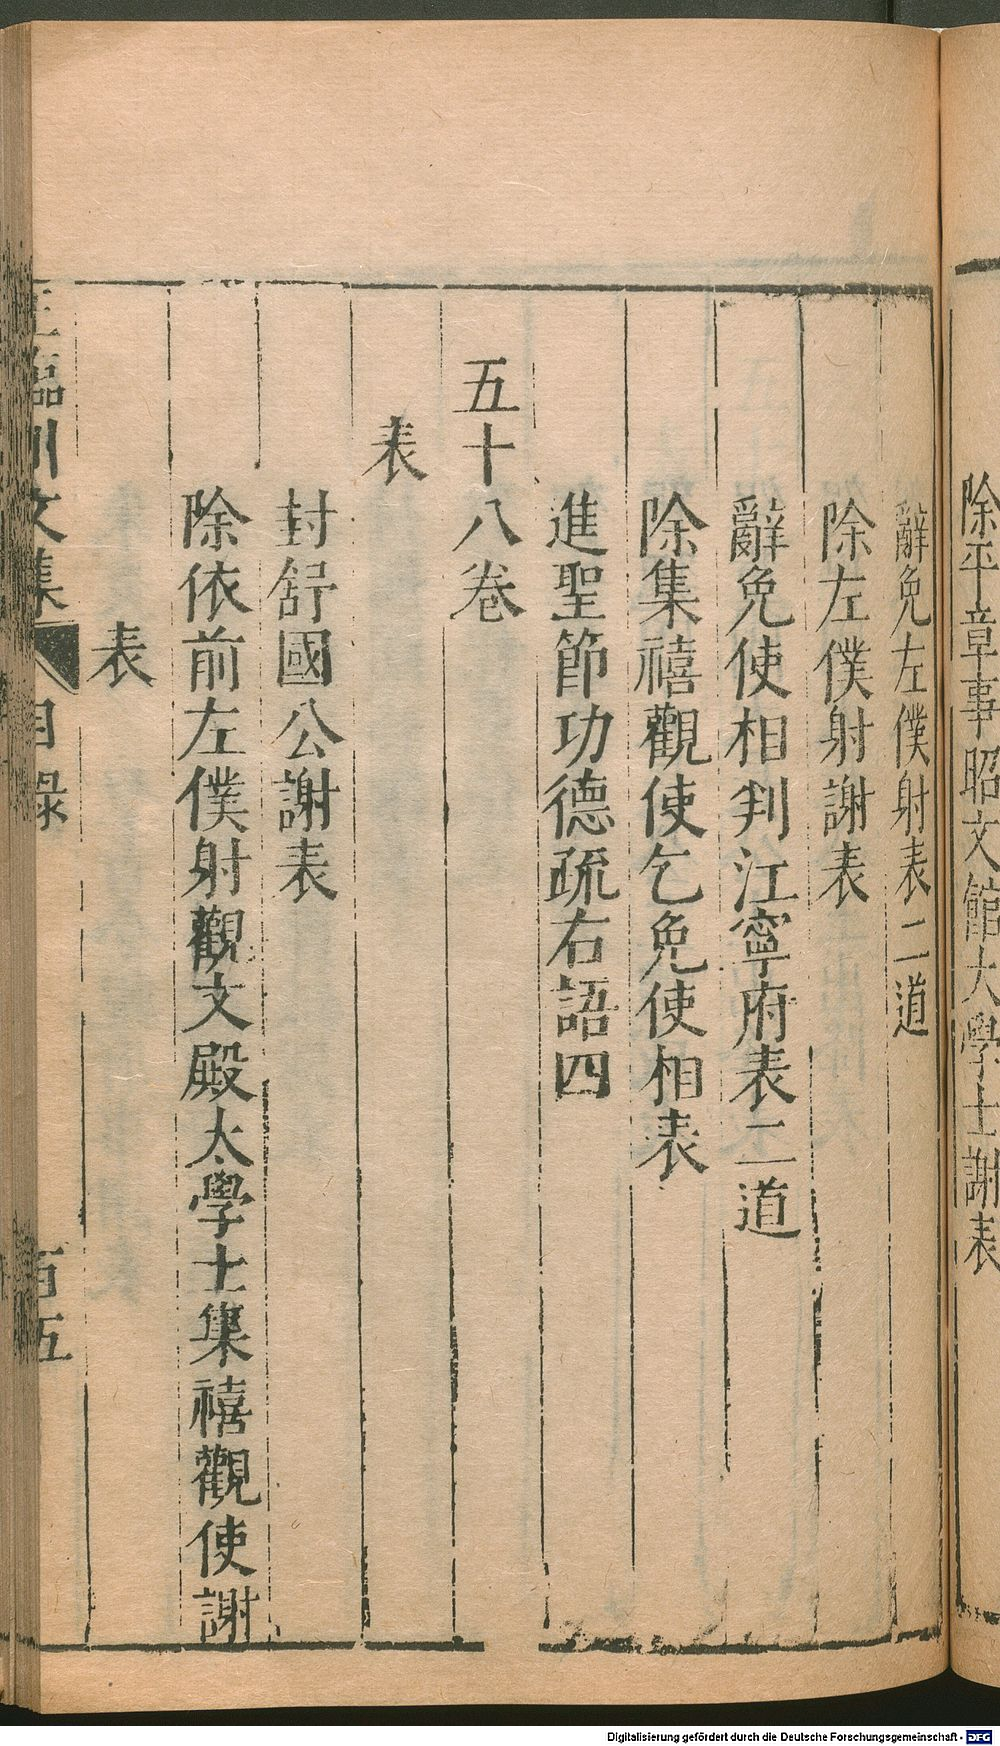 除平章事昭文館大學士謝表
辭免左僕射表二道
除左僕射謝表
辭免使相判江寧府表二道
除集禧觀使乞免使相表
進聖節功德疏右語四
五十八卷
表
封舒國公謝表
除依前左僕射觀文殿大學士集禧觀使謝
表
王臨川文集 目錄 百五
Digitalisierung gefördert durch die Deutsche Forschungsgemeinschaft - DFG